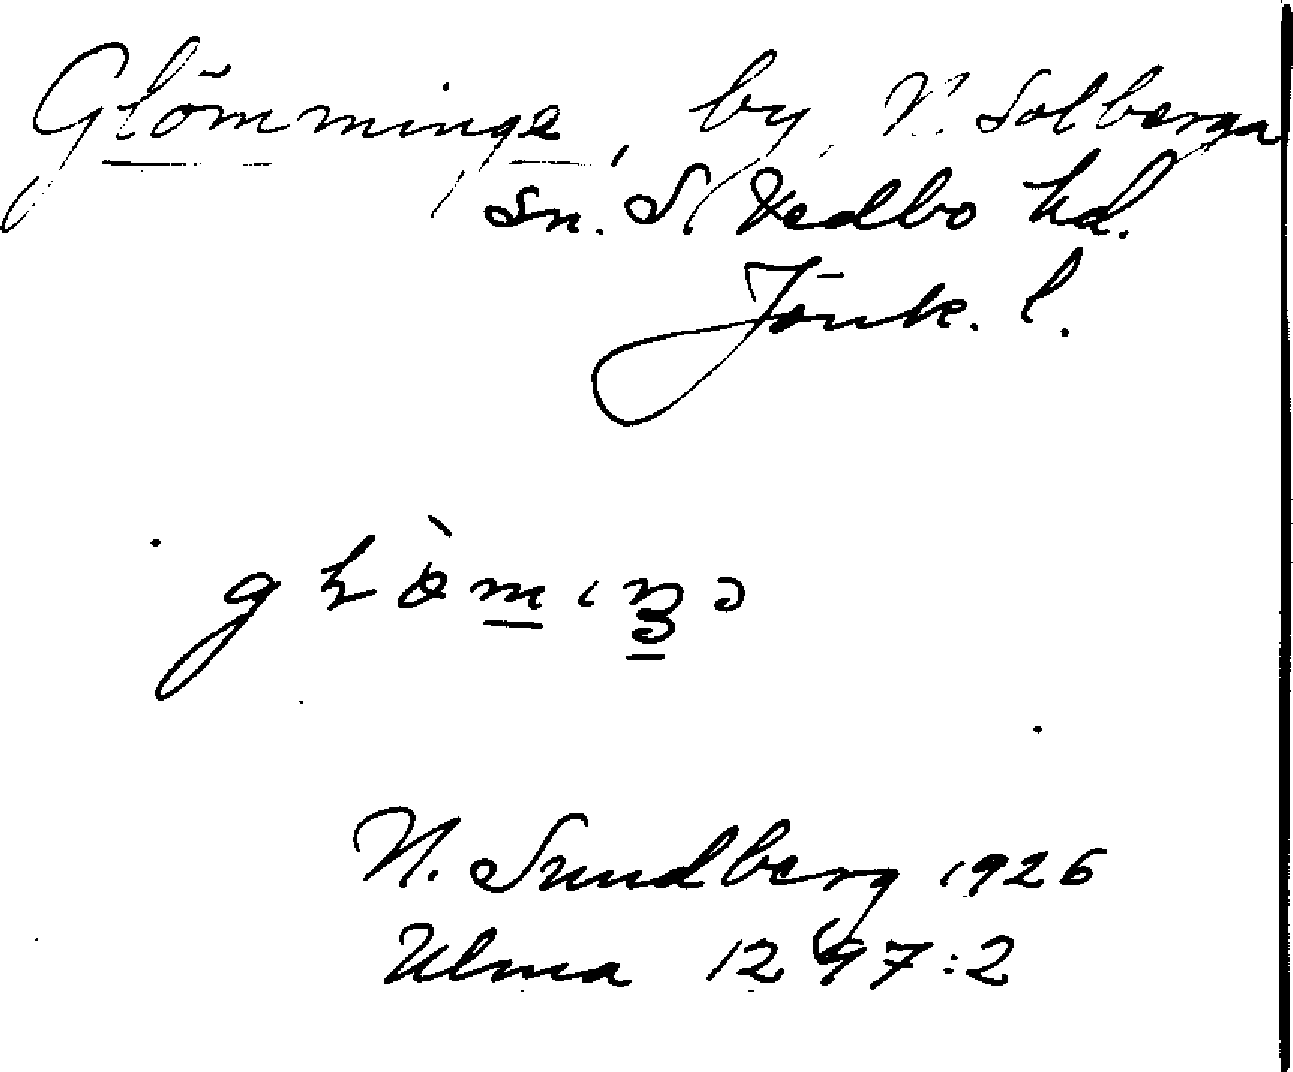 Glömminge, by N. Solberga
sn. S. Vedbo hd.
Jönk. l.
N. Sundberg 1926
Ulma 1297:2